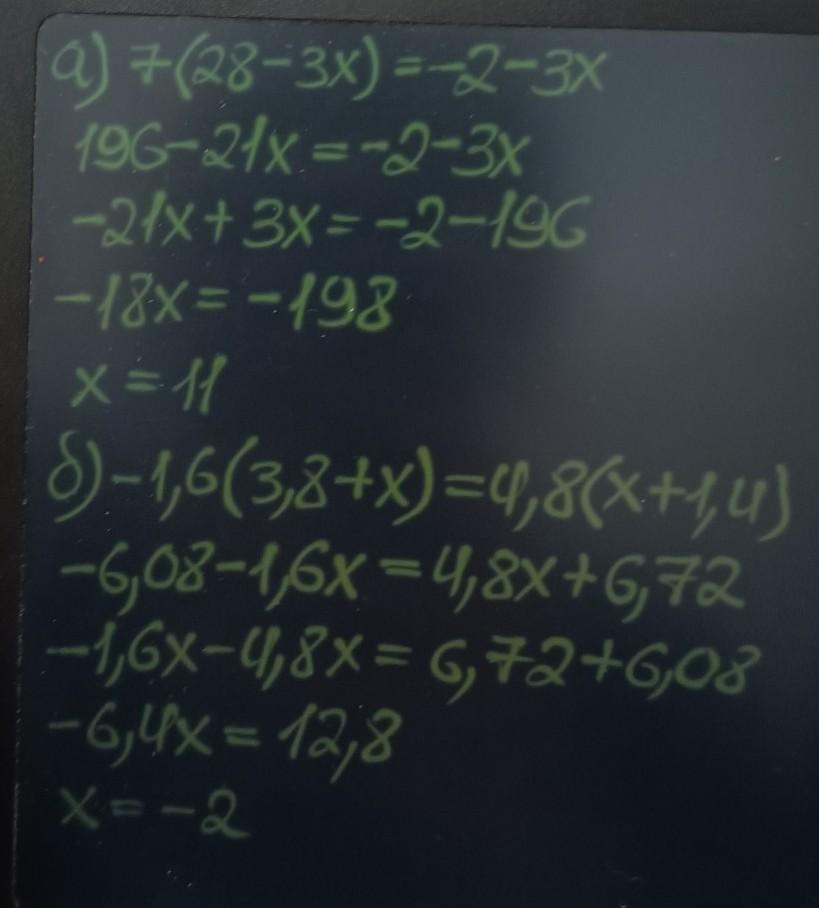 а) 7(28-3x)=-2-3x
196-21x=-2-3x
-21x+3x=-2-196
-18x=-198
x=11
б)-1,6(3,8+x)=4,8(x+1,4)
-6,08-1,6x=4,8x+6,72
-1,6x-4,8x=6,72+6,08
-6,4x=12,8
x=-2